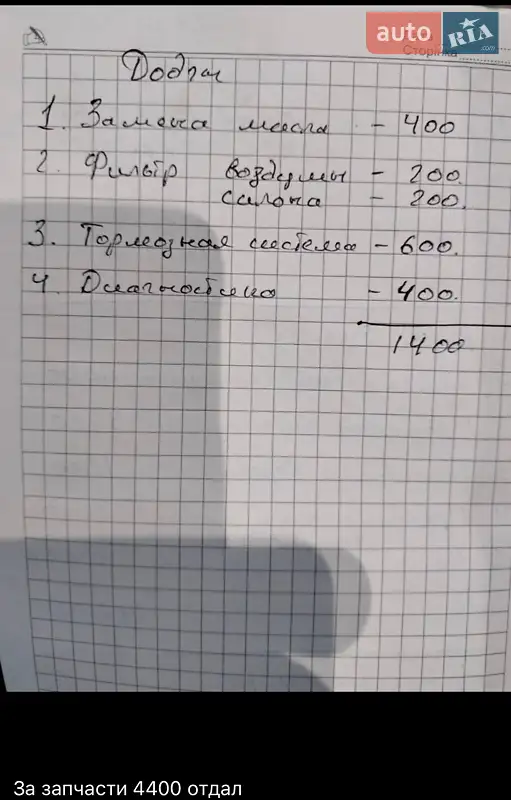 auto RIA.com
Сторінка
Додж
1. Замена масла - 400
2. Фильтр воздушны - 200.
салона - 200.
3. Тормозная система - 600.
4. Диагностика - 400.
1400
За запчасти 4400 отдал